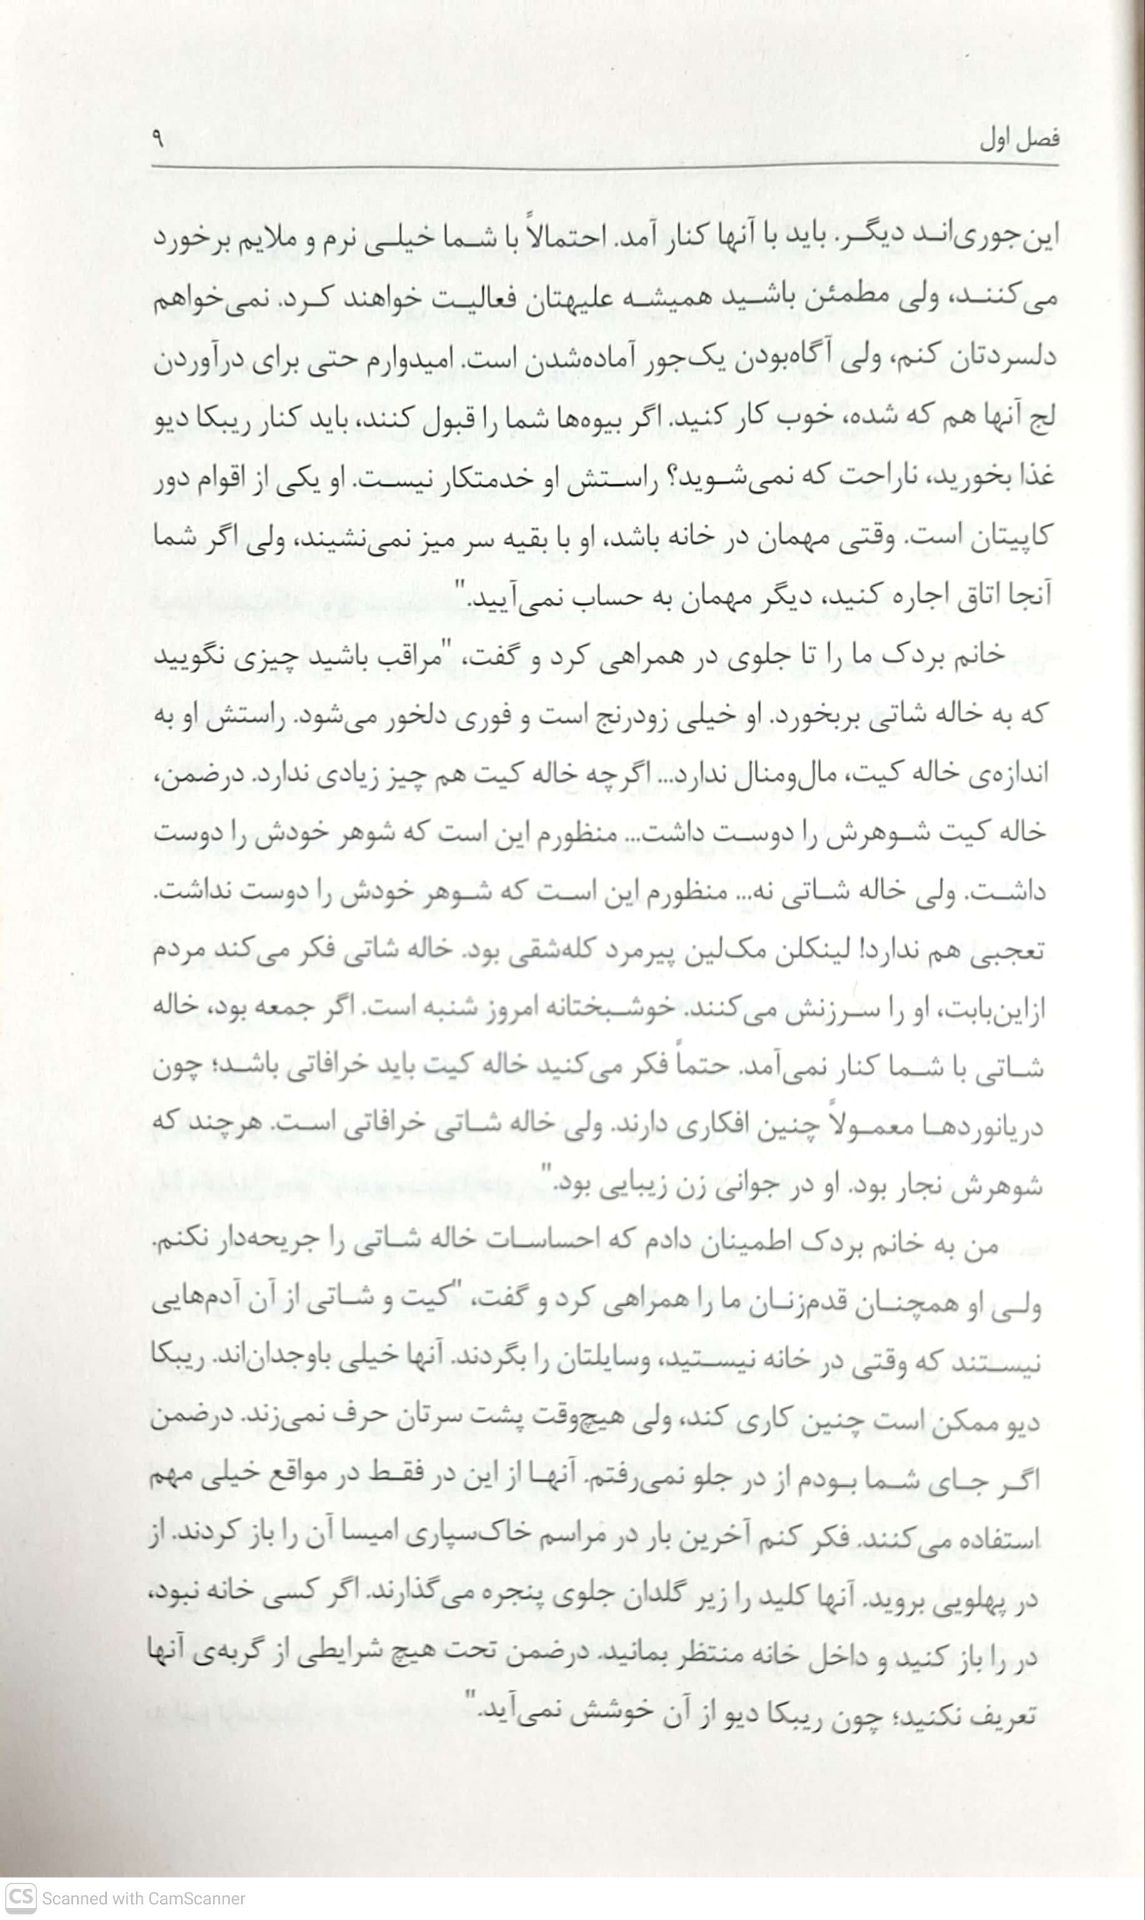 فصل اول ۹
این‌جوری‌اند دیگر. باید با آنها کنار آمد. احتمالاً با شما خیلی نرم و ملایم برخورد
می‌کنند، ولی مطمئن باشید همیشه علیهتان فعالیت خواهند کرد. نمی‌خواهم
دلسردتان کنم، ولی آگاه‌بودن یک‌جور آماده‌شدن است. امیدوارم حتی برای درآوردن
لج آنها هم که شده، خوب کار کنید. اگر بیوه‌ها شما را قبول کنند، باید کنار ریبکا دیو
غذا بخورید، ناراحت که نمی‌شوید؟ راستش او خدمتکار نیست. او یکی از اقوام دور
کاپیتان است. وقتی مهمان در خانه باشد، او با بقیه سر میز نمی‌نشیند، ولی اگر شما
آنجا اتاق اجاره کنید، دیگر مهمان به حساب نمی‌آیید."
خانم بردک ما را تا جلوی در همراهی کرد و گفت، "مراقب باشید چیزی نگویید
که به خاله شاتی بربخورد. او خیلی زودرنج است و فوری دلخور می‌شود. راستش او به
اندازه‌ی خاله کیت، مال‌ومنال ندارد... اگرچه خاله کیت هم چیز زیادی ندارد. درضمن،
خاله کیت شوهرش را دوست داشت... منظورم این است که شوهر خودش را دوست
داشت. ولی خاله شاتی نه... منظورم این است که شوهر خودش را دوست نداشت.
تعجبی هم ندارد! لینکلن مک‌لین پیرمرد کله‌شقی بود. خاله شاتی فکر می‌کند مردم
ازاین‌بابت، او را سرزنش می‌کنند. خوشبختانه امروز شنبه است. اگر جمعه بود، خاله
شاتی با شما کنار نمی‌آمد. حتماً فکر می‌کنید خاله کیت باید خرافاتی باشد؛ چون
دریانوردها معمولاً چنین افکاری دارند. ولی خاله شاتی خرافاتی است. هرچند که
شوهرش نجار بود. او در جوانی زن زیبایی بود."
من به خانم بردک اطمینان دادم که احساسات خاله شاتی را جریحه‌دار نکنم.
ولی او همچنان قدم‌زنان ما را همراهی کرد و گفت، "کیت و شاتی از آن آدم‌هایی
نیستند که وقتی در خانه نیستید، وسایلتان را بگردند. آنها خیلی باوجدان‌اند. ریبکا
دیو ممکن است چنین کاری کند، ولی هیچ‌وقت پشت سرتان حرف نمی‌زند. درضمن
اگر جای شما بودم از در جلو نمی‌رفتم. آنها از این در فقط در مواقع خیلی مهم
استفاده می‌کنند. فکر کنم آخرین بار در مراسم خاک‌سپاری امیسا آن را باز کردند. از
در پهلویی بروید. آنها کلید را زیر گلدان جلوی پنجره می‌گذارند. اگر کسی خانه نبود،
در را باز کنید و داخل خانه منتظر بمانید. درضمن تحت هیچ شرایطی از گربه‌ی آنها
تعریف نکنید؛ چون ریبکا دیو از آن خوشش نمی‌آید."
CS Scanned with CamScanner